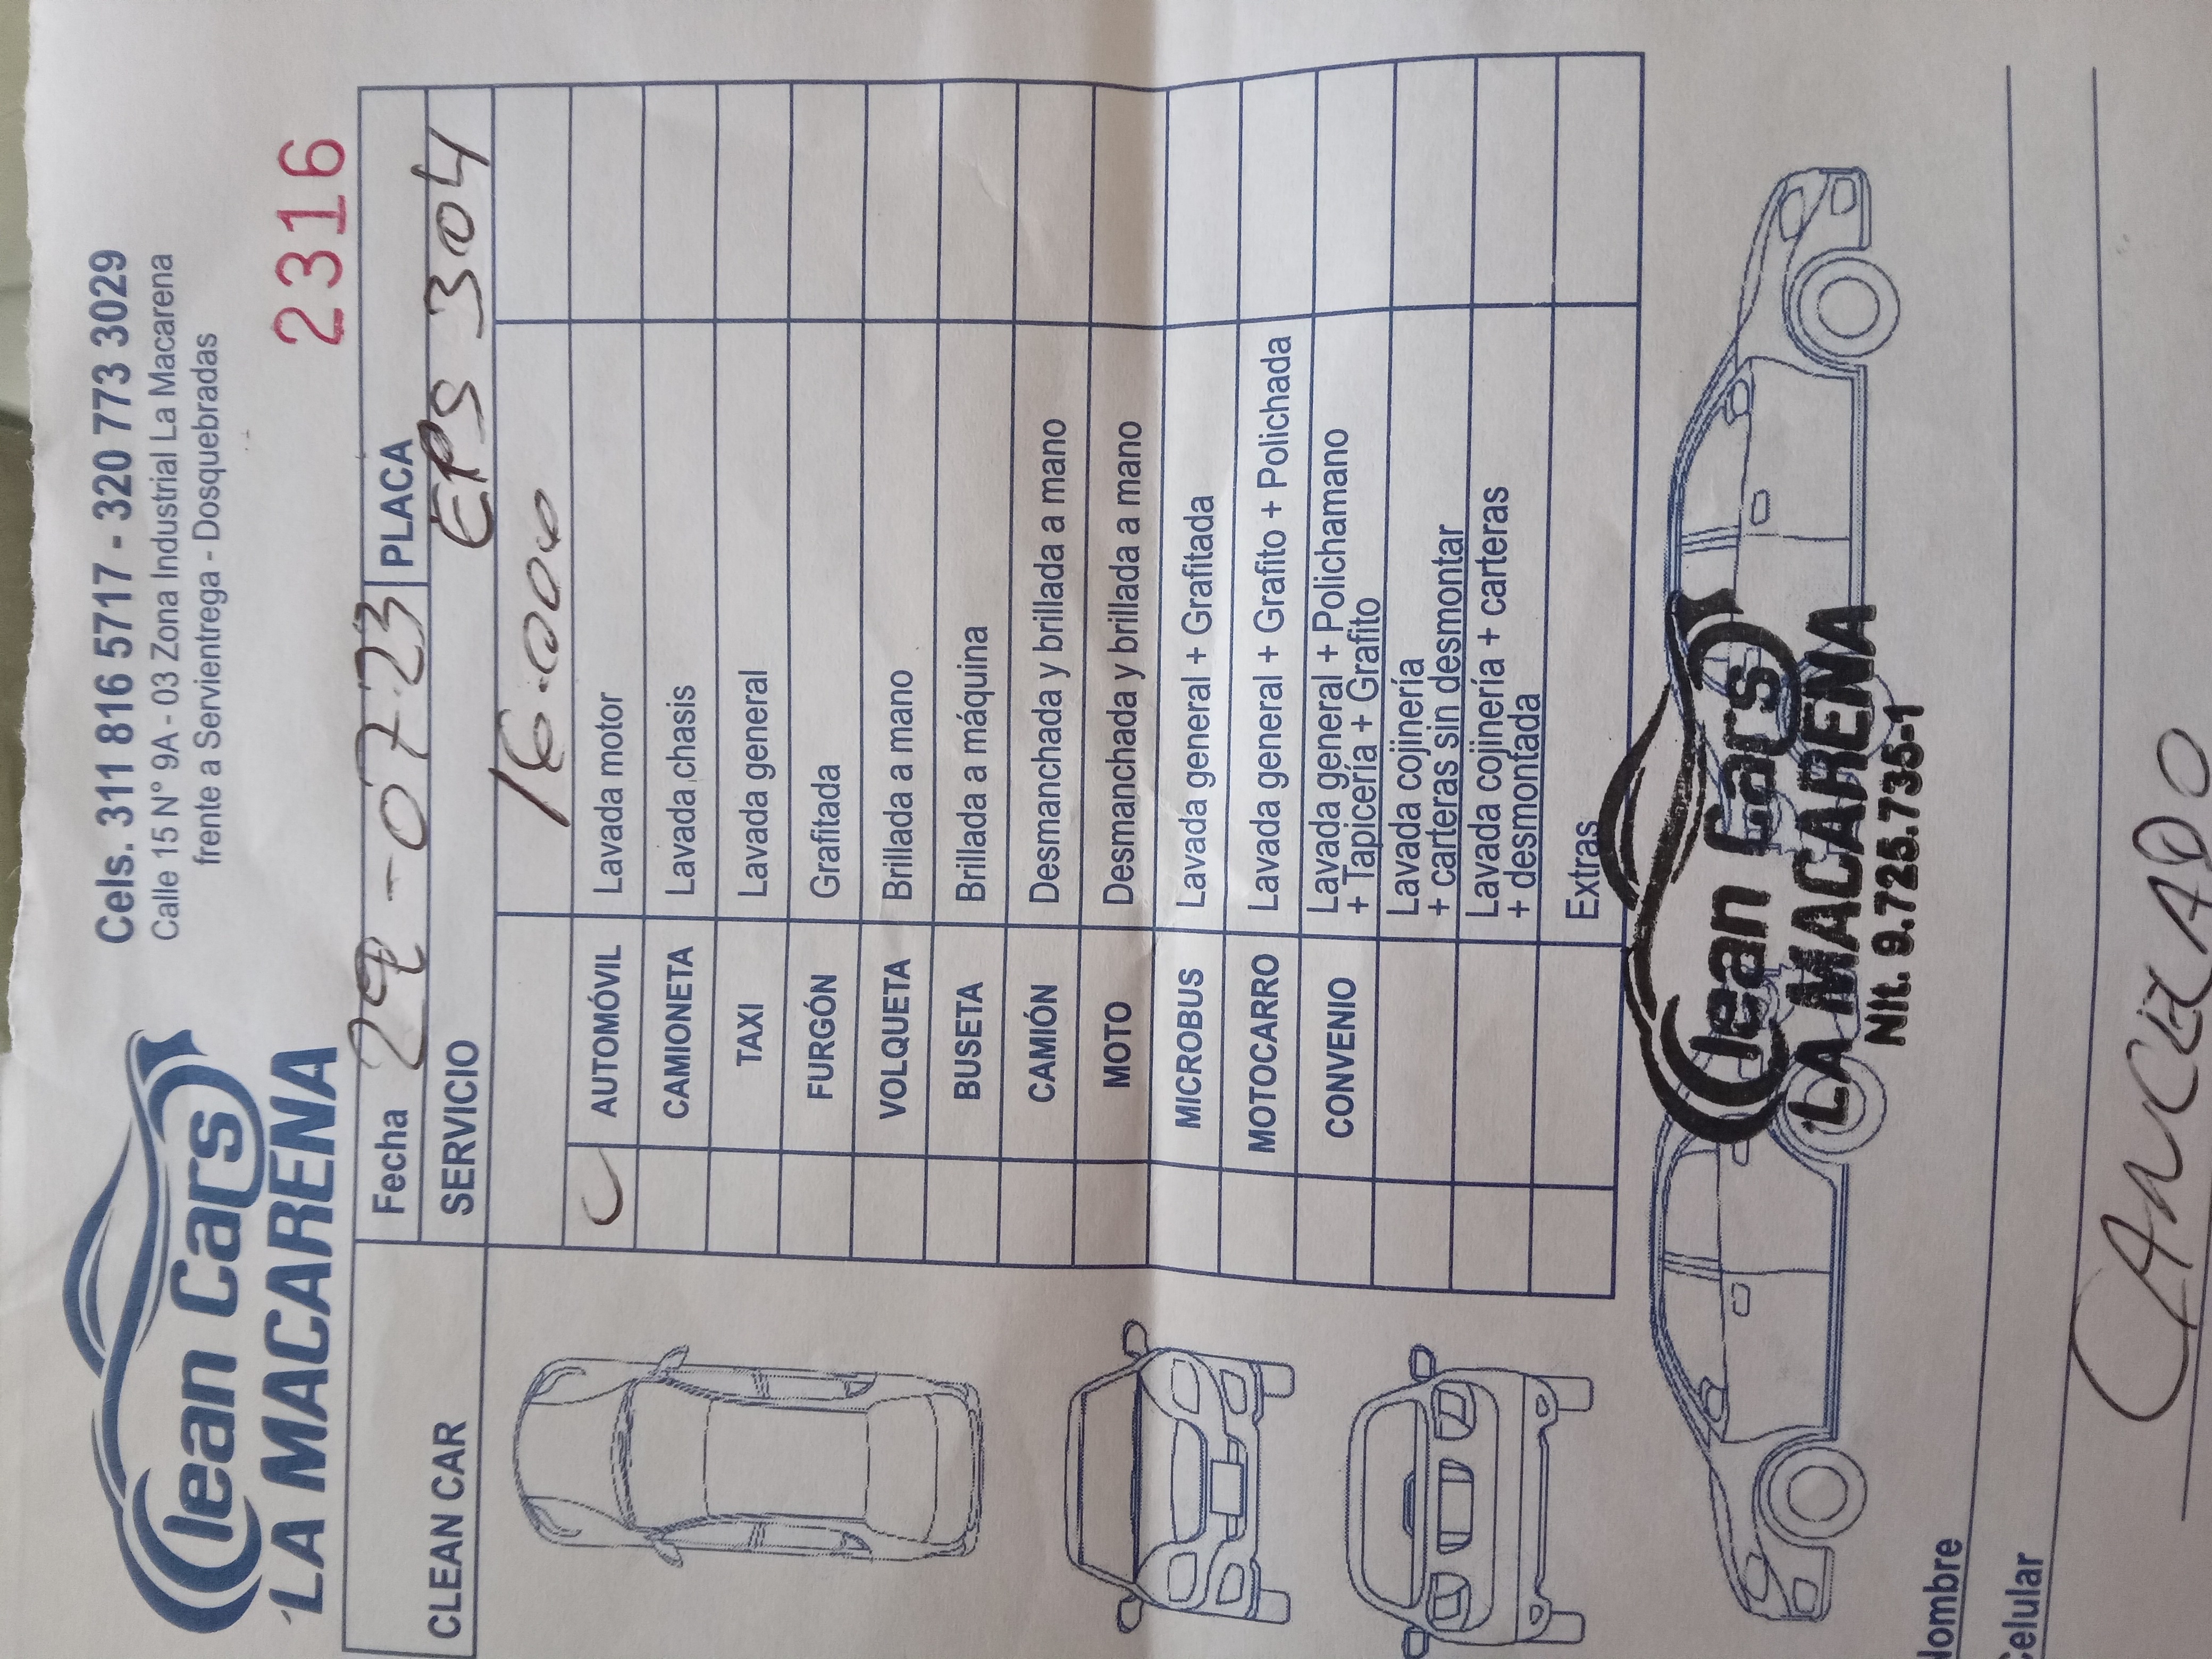 Clean Cars
LA MACARENA
Cels. 311 816 5717 - 320 773 3029
Calle 15 N° 9A - 03 Zona Industrial La Macarena
frente a Servientrega - Dosquebradas
2316
CLEAN CAR
Fecha
-07-23
PLACA
SERVICIO
EPS 304
16.000
AUTOMÓVIL Lavada motor
CAMIONETA Lavada chasis
TAXI Lavada general
FURGÓN Grafitada
VOLQUETA Brillada a mano
BUSETA Brillada a máquina
CAMIÓN Desmanchada y brillada a mano
MOTO Desmanchada y brillada a mano
MICROBUS Lavada general + Grafitada
MOTOCARRO Lavada general + Grafito + Polichada
CONVENIO Lavada general + Polichamano
+ Tapicería + Grafito
Lavada cojinería
+ carteras sin desmontar
Lavada cojinería + carteras
+ desmontada
Extras
Clean Cars
LA MACARENA
Nit. 9.725.735-1
Nombre
Celular